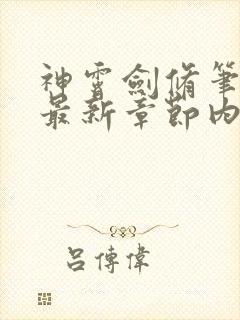 神霄劍脩筆
最新章節內
吕傳偉